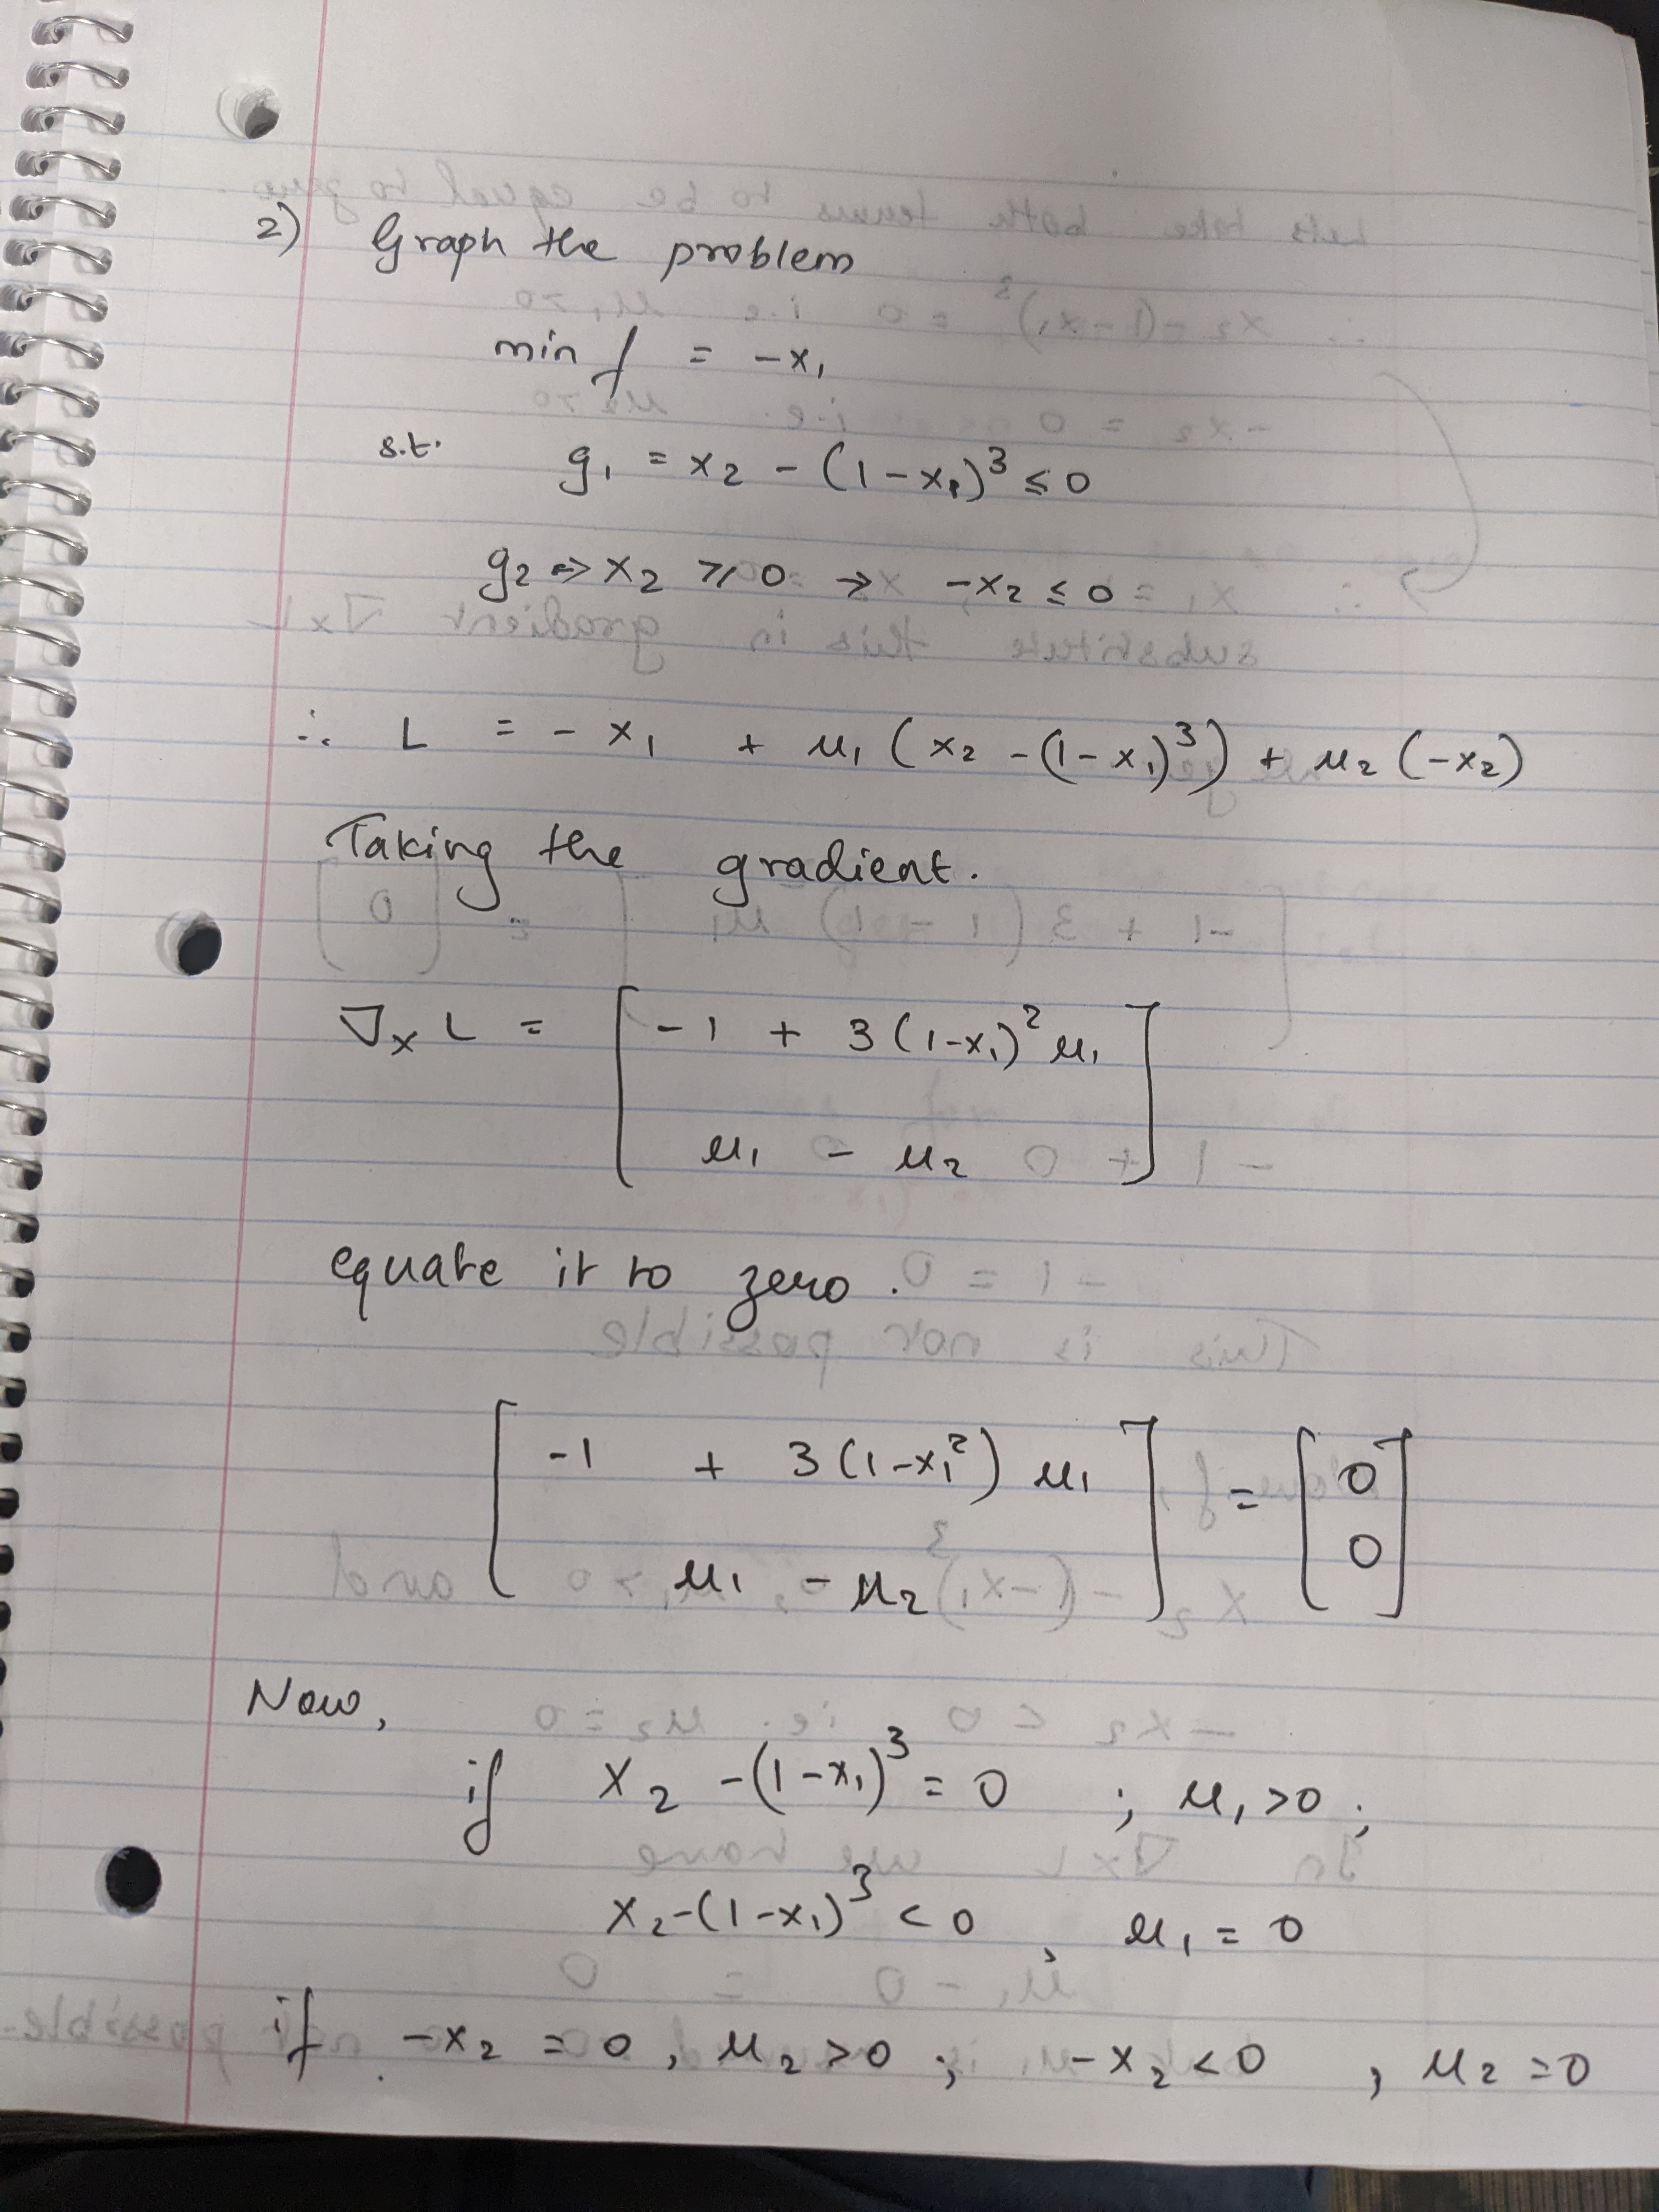 2) Graph the problem
min f = -x₁
s.t. g₁ = x₂ - (1-x₁)³ ≤ 0
g₂ ⇒ x₂ ≥ 0 → -x₂ ≤ 0
∴ L = - x₁ + μ₁ (x₂ - (1-x₁)³) + μ₂ (-x₂)
Taking the gradient.
∇ₓ L = [ -1 + 3(1-x₁)² μ₁
μ₁ - μ₂ ]
equate it to zero.
[ -1 + 3(1-x₁²) μ₁
μ₁ - μ₂ ] = [ 0
0 ]
Now,
if x₂ - (1-x₁)³ = 0 ; μ₁ > 0 ;
x₂ - (1-x₁)³ < 0 , μ₁ = 0
if -x₂ = 0 , μ₂ > 0 ; -x₂ < 0 , μ₂ = 0